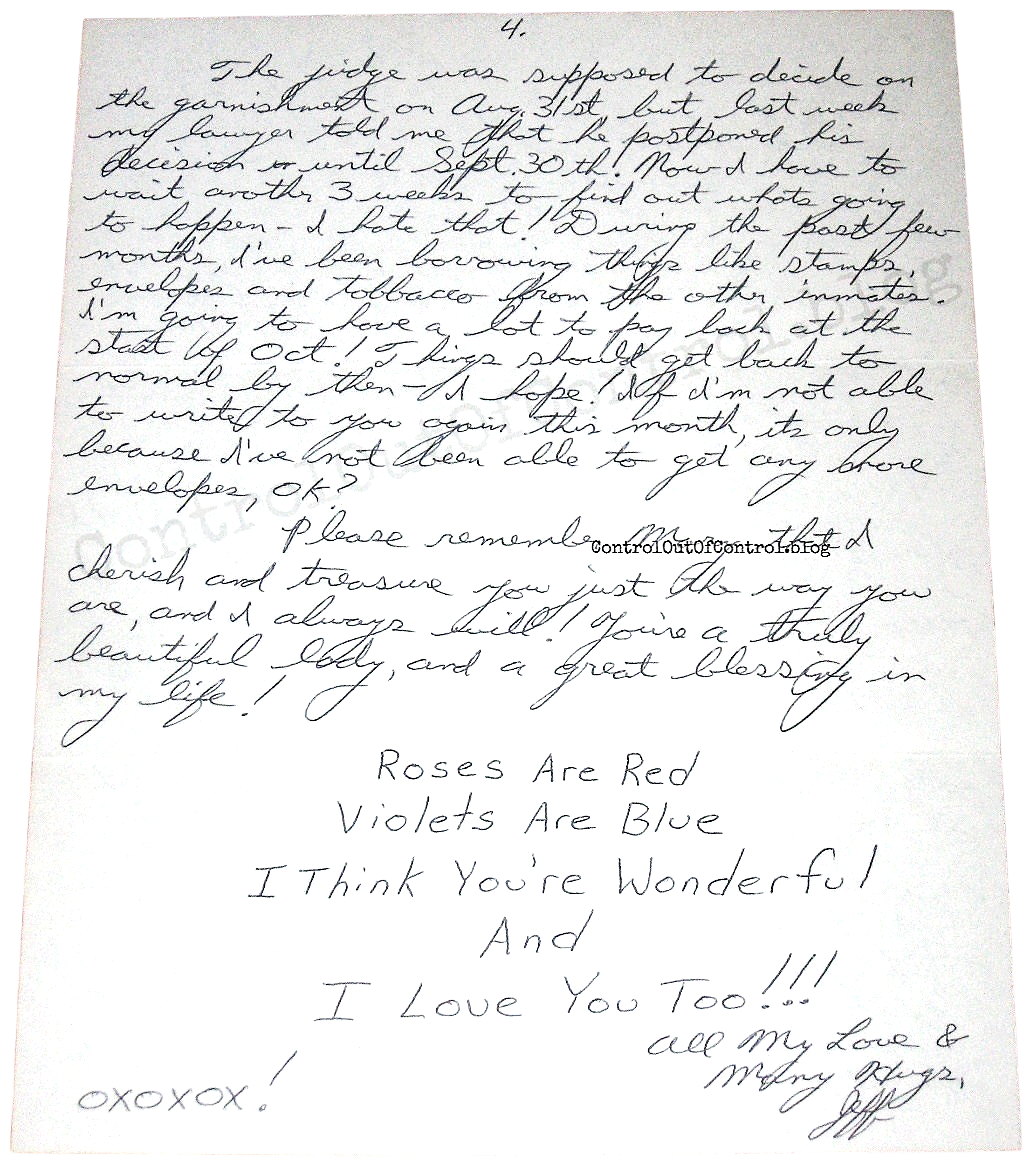 4.
The judge was supposed to decide on
the garnishment on Aug. 31st, but last week
my lawyer told me that he postponed his
decision until Sept. 30th. Now I have to
wait another 3 weeks to find out whats going
to happen - I hate that! During the past few
months, I've been borrowing things like stamps,
envelopes and tobbacco from the other inmates.
I'm going to have a lot to pay back at the
start of Oct! Things should get back to
normal by then - I hope! If I'm not able
to write to you again this month, its only
because I've not been able to get any more
envelopes, OK?
Please remember that I
ControlOutOfControl.blog
cherish and treasure you just the way you
are, and I always will! You're a truly
beautiful lady, and a great blessing in
my life!
Roses Are Red
Violets Are Blue
I Think You're Wonderful
And
I Love You Too!!!
All My Love &
Many Hugs,
Jeff
OXOXOX!
ControlOutOfControl.blog